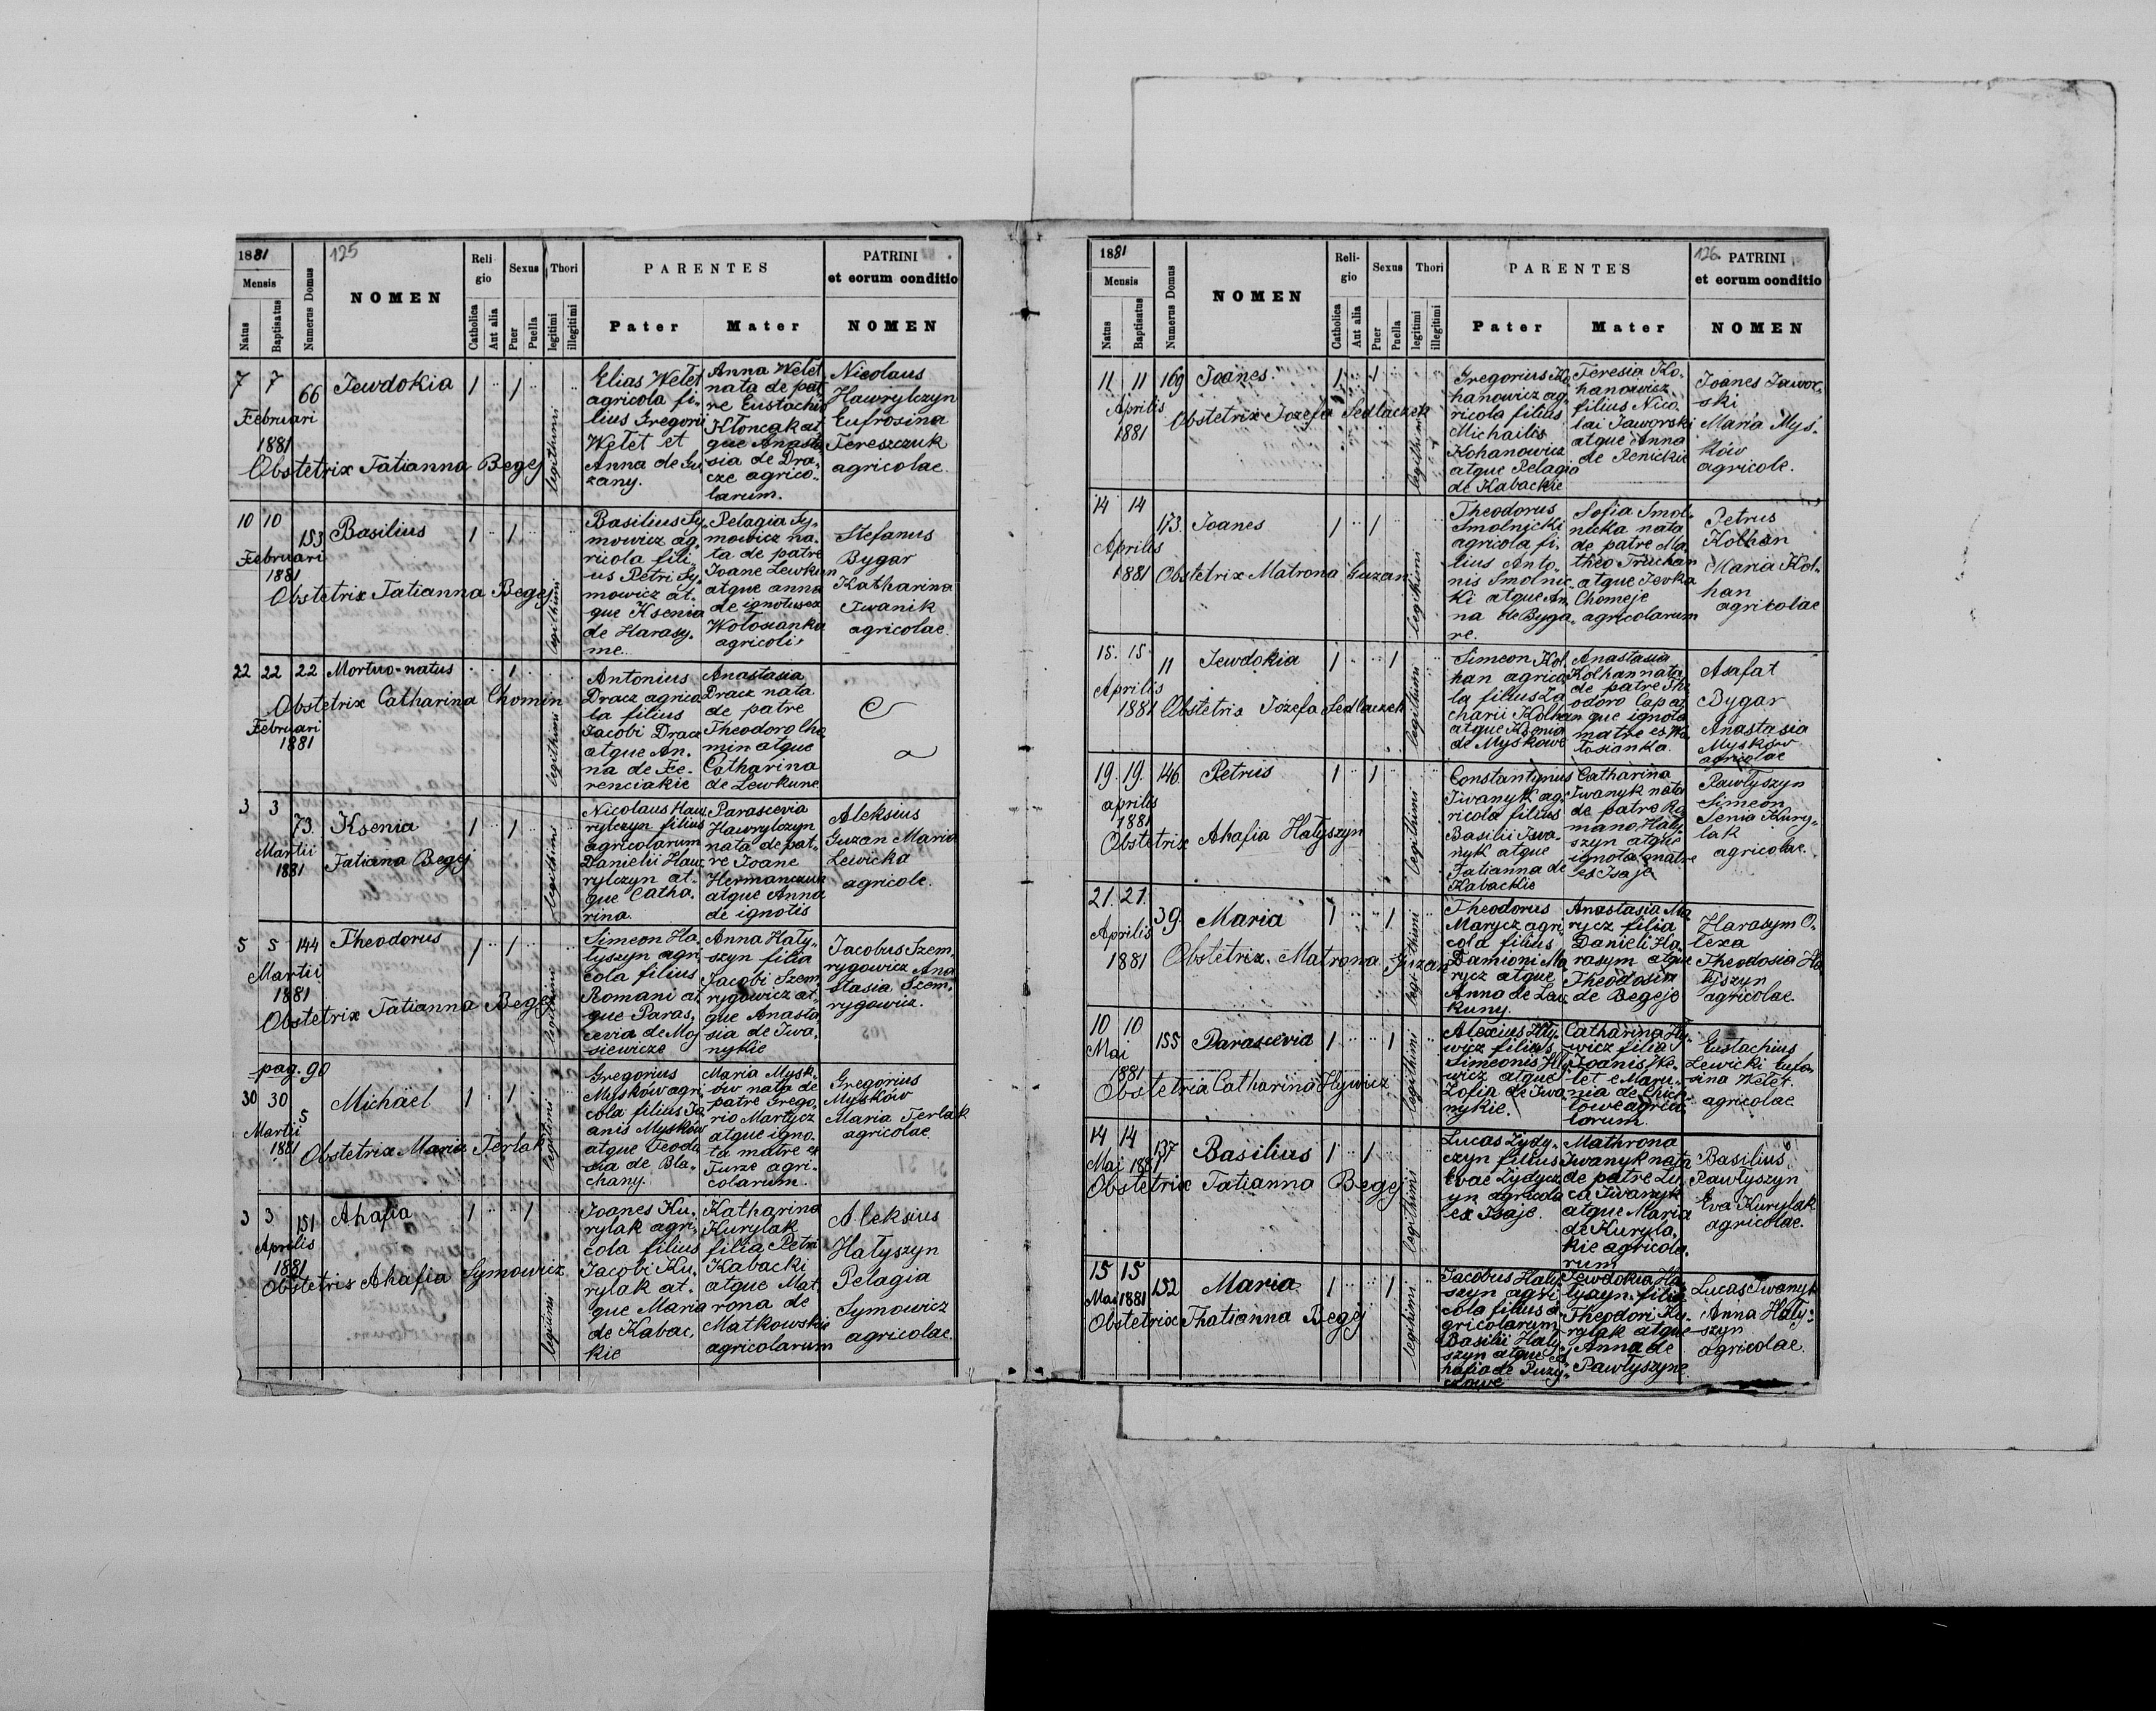 1881
125
Mensis
Natus
Baptisatus
Numerus Domus
NOMEN
Reli
gio
Catholica
Aut alia
Sexus
Puer
Puella
Thori
legitimi
illegitimi
PARENTES
Pater
Mater
PATRINI
et eorum conditio
NOMEN
7 7 66 Jewdokia 1 1
Februari
1881
Obstetrix Tatianna Begej
legithimi
Elias Wełet
agricola fi-
lius Gregorii
Wełet et
Anna de Gu
zany.
Anna Wełet
nata de pat
re Eustachio
Kloncak at
que Anasta
sia de Dra-
cze agrico-
larum.
Nicolaus
Hawrylczyn
Eufrosina
Tereszczuk
agricolae
10 10 153 Basilius 1 1
Februari
1881
Obstetrix Tatianna Begej
legithimi
Basilius Sy-
mowicz ag-
ricola fili-
us Petri Sy-
mowicz at-
que Ksenia
de Harasy-
me.
Pelagia Sy-
mowicz na-
ta de patre
Joane Lewkun
atque anna
de ignotus ex
Wołosianka
agricoli
Stefanus
Bygar
Katharina
Iwanik
agricolae.
22 22 22 Mortuo-natus 1
Obstetrix Catharina Chomin
Februari
1881
legithimi
Antonius
Dracz agrico
la filius
Jacobi Dracz
atque An-
na de Fe-
renciakie
Anastasia
Dracz nata
de patre
Theodoro Cho
min atque
Catharina
de Lewkune
3 3 73. Ksenia 1 1
Martii
1881
Tatiana Begej
legithimi
Nicolaus Haw-
rylczyn filius
agricolarum
Danielii Haw-
rylczyn at-
que Catha-
rina
Parascevia
Hawrylczyn
nata de pat-
re Joane
Hermanczuk
atque Anna
de ignotis
Aleksius
Guzan Maria
Lewicka
agricole.
5 5 144 Theodorus 1 1
Martii
1881
Obstetrix Tatianna Begej
legithimi
Simeon Ha-
łyszyn agri
cola filius
Romani at
que Paras-
cevia de Moj
siewicze
Anna Hały-
szyn filia
Jacobi Szem-
rygowicz at-
que Anasta
sia de Iwa-
nykie
Jacobus Szem-
rygowicz Ana
stasia Szem-
rygowicz.
pag. 90
30 30 5 Michäel 1 1
Martii
1881
Obstetrix Maria Terlak
legitimi
Gregorius
Myśków agri-
cola filius Jo
anis Myśków
atque Feodo
sia de Bla-
chany.
Maria Myśk-
ów nata de
patre Grego-
rio Martycz
atque igno-
ta matre ex
Turze agri-
colarum.
Gregorius
Myśków
Maria Terlak
agricolae.
3 3 151 Ahafia 1 1
Aprilis
1881
Obstetrix Ahafia Symowicz
legitimi
Joanes Ku-
rylak agri-
cola filius
Jacobi Ku-
rylak at-
que Maria
de Kabac-
kie
Katharina
Kurylak
filia Petri
Kabacki
atque Mat-
rona de
Matkowskie
agricolarum
Aleksius
Hałyszyn
Pelagia
Symowicz
agricolae.
1881
126.
Mensis
Natus
Baptisatus
Numerus Domus
NOMEN
Reli-
gio
Catholica
Aut alia
Sexus
Puer
Puella
Thori
legitimi
illegitimi
PARENTES
Pater
Mater
PATRINI
et eorum conditio
NOMEN
11 11 169 Joanes. 1 1
Aprilis
1881
Obstetrix Jozefa Sedlaczek
legithimi
Gregorius Ko
hanowicz ag-
ricola filius
Michailis
Kohanowicz
atque Pelagia
de Kabackie
Teresia Ko-
hanowicz
filius Nico-
lai Jaworski
atque Anna
de Penickie
Joanes Jawor-
ski
Maria Myś-
ków
agricole.
14 14 173. Joanes 1 1
Aprilis
1881 Obstetrix Matrona Guzan
legithimi
Theodorus
Smolnicki
agricola fi-
lius Anto-
nis Smolnic-
ki atque An-
na de Byga-
re.
Sofia Smol-
nicka nata
de patre Ma-
theo Truchan
atque Jevka
Chomeje
agricolarum
Petrus
Kolhan
Maria Kol-
han
agricolae
15. 15. 11 Jewdokia 1 1
Aprilis
1881 Obstetrix Józefa Sedlaczek
legithimi
Simeon Kol-
han agrico
la filius Za
charii Kolhan
atque Ksenia
de Myśkowe
Anastasia
Kolhan nata
de patre The
odoro Cap at
que ignota
matre es Wo
łosianka.
Asafat
Bygar
Anastasia
Myśków
agricolae
19. 19. 146. Petrus 1 1
aprilis
1881
Obstetrix Ahafia Hałyszyn
legithimi
Constantynus
Iwanyk ag-
ricola filius
Basilii Iwa-
nyk atque
Tatianna de
Kabackie
Catharina
Iwanyk nata
de patre Ro
mano Hały-
szyn atque
ignota matre
es Isaje
Pawłyszyn
Simeon
Senia Kury-
lak
agricolae.
21. 21. 39. Maria 1 1
Aprilis
1881 Obstetrix. Matrona Guzan
legithimi
Theodorus
Marycz agri
cola filius
Damioni Ma
rycz atque
Anna de Lew
kuny.
Anastasia Ma
rycz filia
Danieli Ha-
rasym atque
Theodosia
de Begeje
Harasym O-
lexa
Theodosia Ha
łyszyn
agricolae.
10 10 155 Parascevia 1 1
Mai
1881
Obstetria Catharina Hywicz
legithimi
Alexius Hły-
wicz filius
Simeonis Hły-
wicz atque
Zofia de Iwa-
nykie.
Catharina Hły-
wicz filia
Joanis We-
let e Maru-
nia de Chich-
łowe agrico-
larum.
Eustachius
Lewicki Eufro-
sina Wełet.
agricolae
14 14 137 Basilius 1 1
Mai 1881
Obstetrix Tatianna Begej
legithimi
Lucas Zydy-
czyn filius
Evae Zydycz
yn agricola
ex Isaje.
Mathrona
Iwanyk nata
de patre Lu-
ca Iwanyk
atque Maria
de Kuryla-
kie agricola-
rum
Basilius
Pawłyszyn
Eva Kurylak
agricolae.
15 15 152 Maria 1 1
Mai 1881
Obstetrix Thatianna Begej
legithimi
Jacobus Hały-
szyn agri
cola filius a-
gricolarum
Basilii Hały-
szyn atque A
hafia de Puzy-
kowe
Jewdokia Ha-
łyszyn filia
Theodori Ku-
rylak atque
Anna de
Pawłyszyne.
Lucas Iwanyk
Anna Hały-
szyn
agricolae.